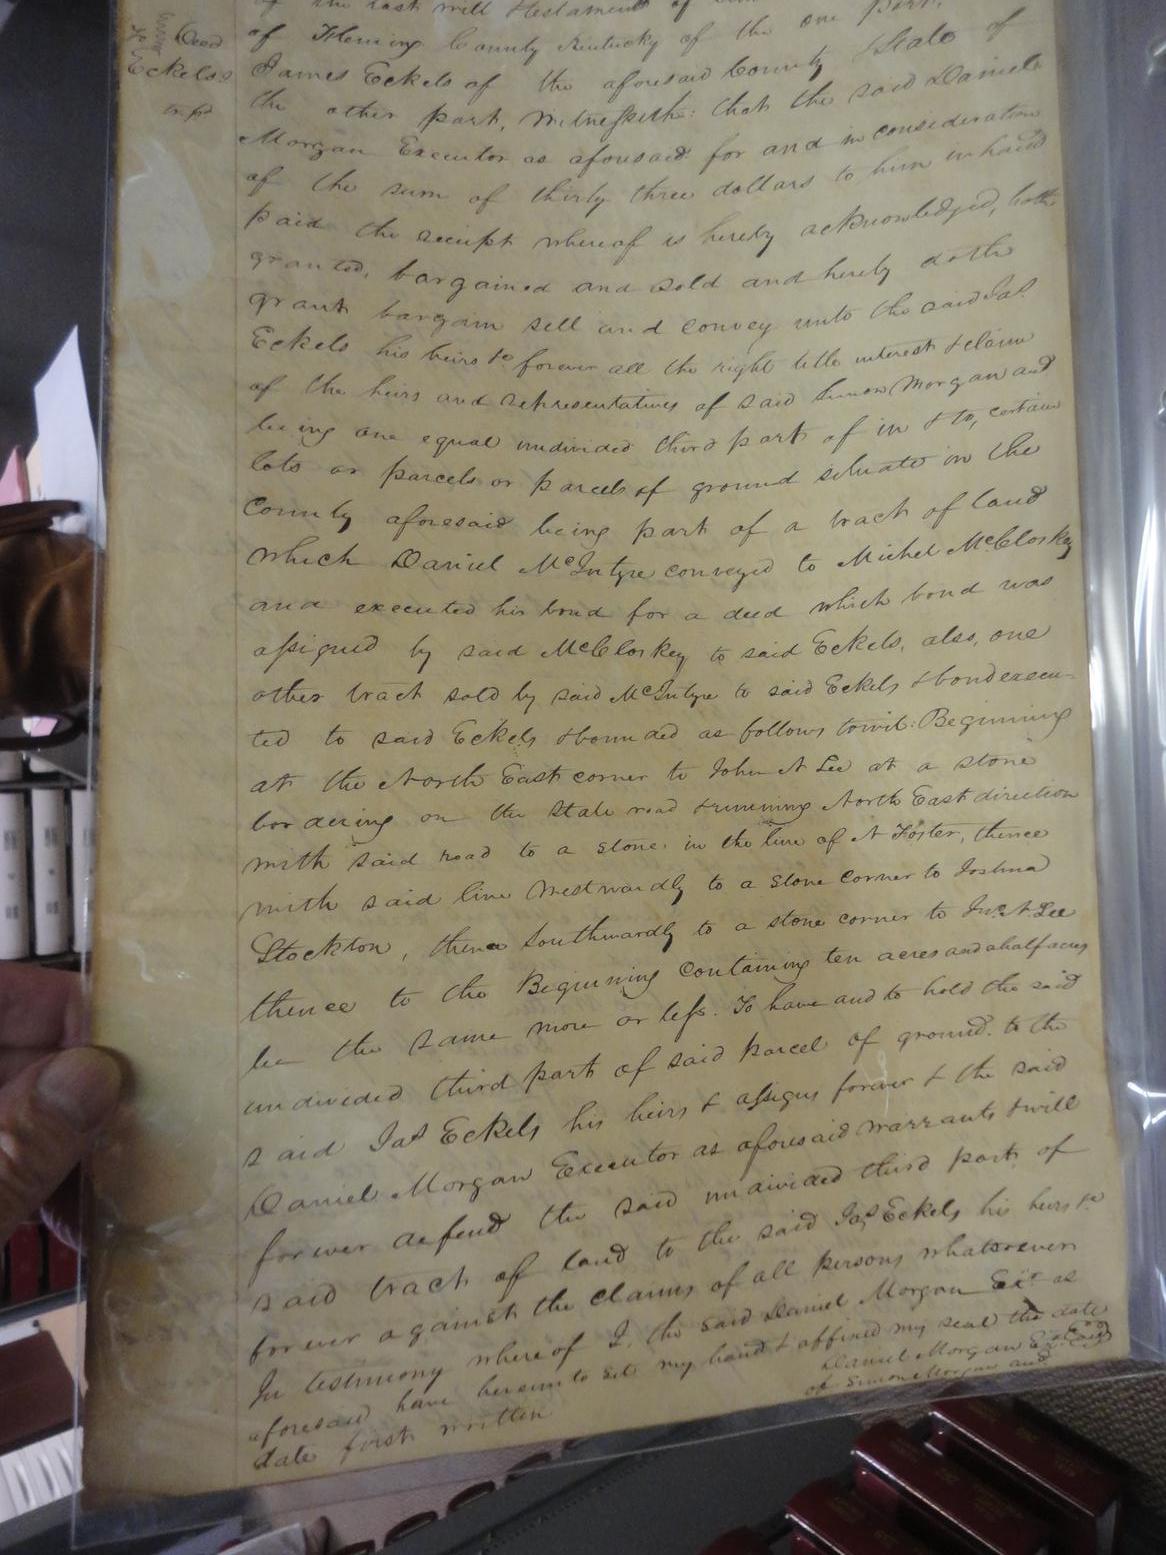 Deed
To
Eckels
of the last will & testament of
of Fleming County Kentucky of the one part,
James Eckels of the aforesaid County & State of
the other part, Witnesseth: that the said Daniel
Morgan Executor as aforesaid for and in consideration
of the sum of thirty three dollars to him in hand
paid the receipt whereof is hereby acknowledged, hath
granted, bargained and sold and hereby doth
grant bargain sell and convey unto the said Jas.
Eckels his heirs &c forever all the right title interest & claim
of the heirs and representatives of said Simon Morgan and
being one equal undivided third part of in & to, certain
lots or parcels or parcels of ground situate in the
County aforesaid being part of a tract of land
which Daniel McIntyre conveyed to Michel McCloskey
and executed his bond for a deed which bond was
assigned by said McCloskey to said Eckels, also, one
other tract sold by said McIntyre to said Eckels & bond execu-
ted to said Eckels & bounded as follows towit: Beginning
at the North East corner to John A Lee at a stone
bordering on the State road & running North East direction
with said road to a stone in the line of A Foster, thence
with said line Westwardly to a stone corner to Joshua
Stockton, thence Southwardly to a stone corner to Jno. A Lee
thence to the Beginning Containing ten acres and a half acres
be the same more or less. To have and to hold the said
undivided third part of said parcel of ground to the
said Jas Eckels his heirs & assigns forever & the said
Daniel Morgan Executor as aforesaid warrants & will
forever defend the said undivided third part of
said tract of land to the said Jas Eckels his heirs &c
forever against the claims of all persons whatsoever
In testimony whereof I, the said Daniel Morgan Exr as
aforesaid have hereunto set my hand & affixed my seal the date
date first written
Daniel Morgan Exr
of Simon Morgan and